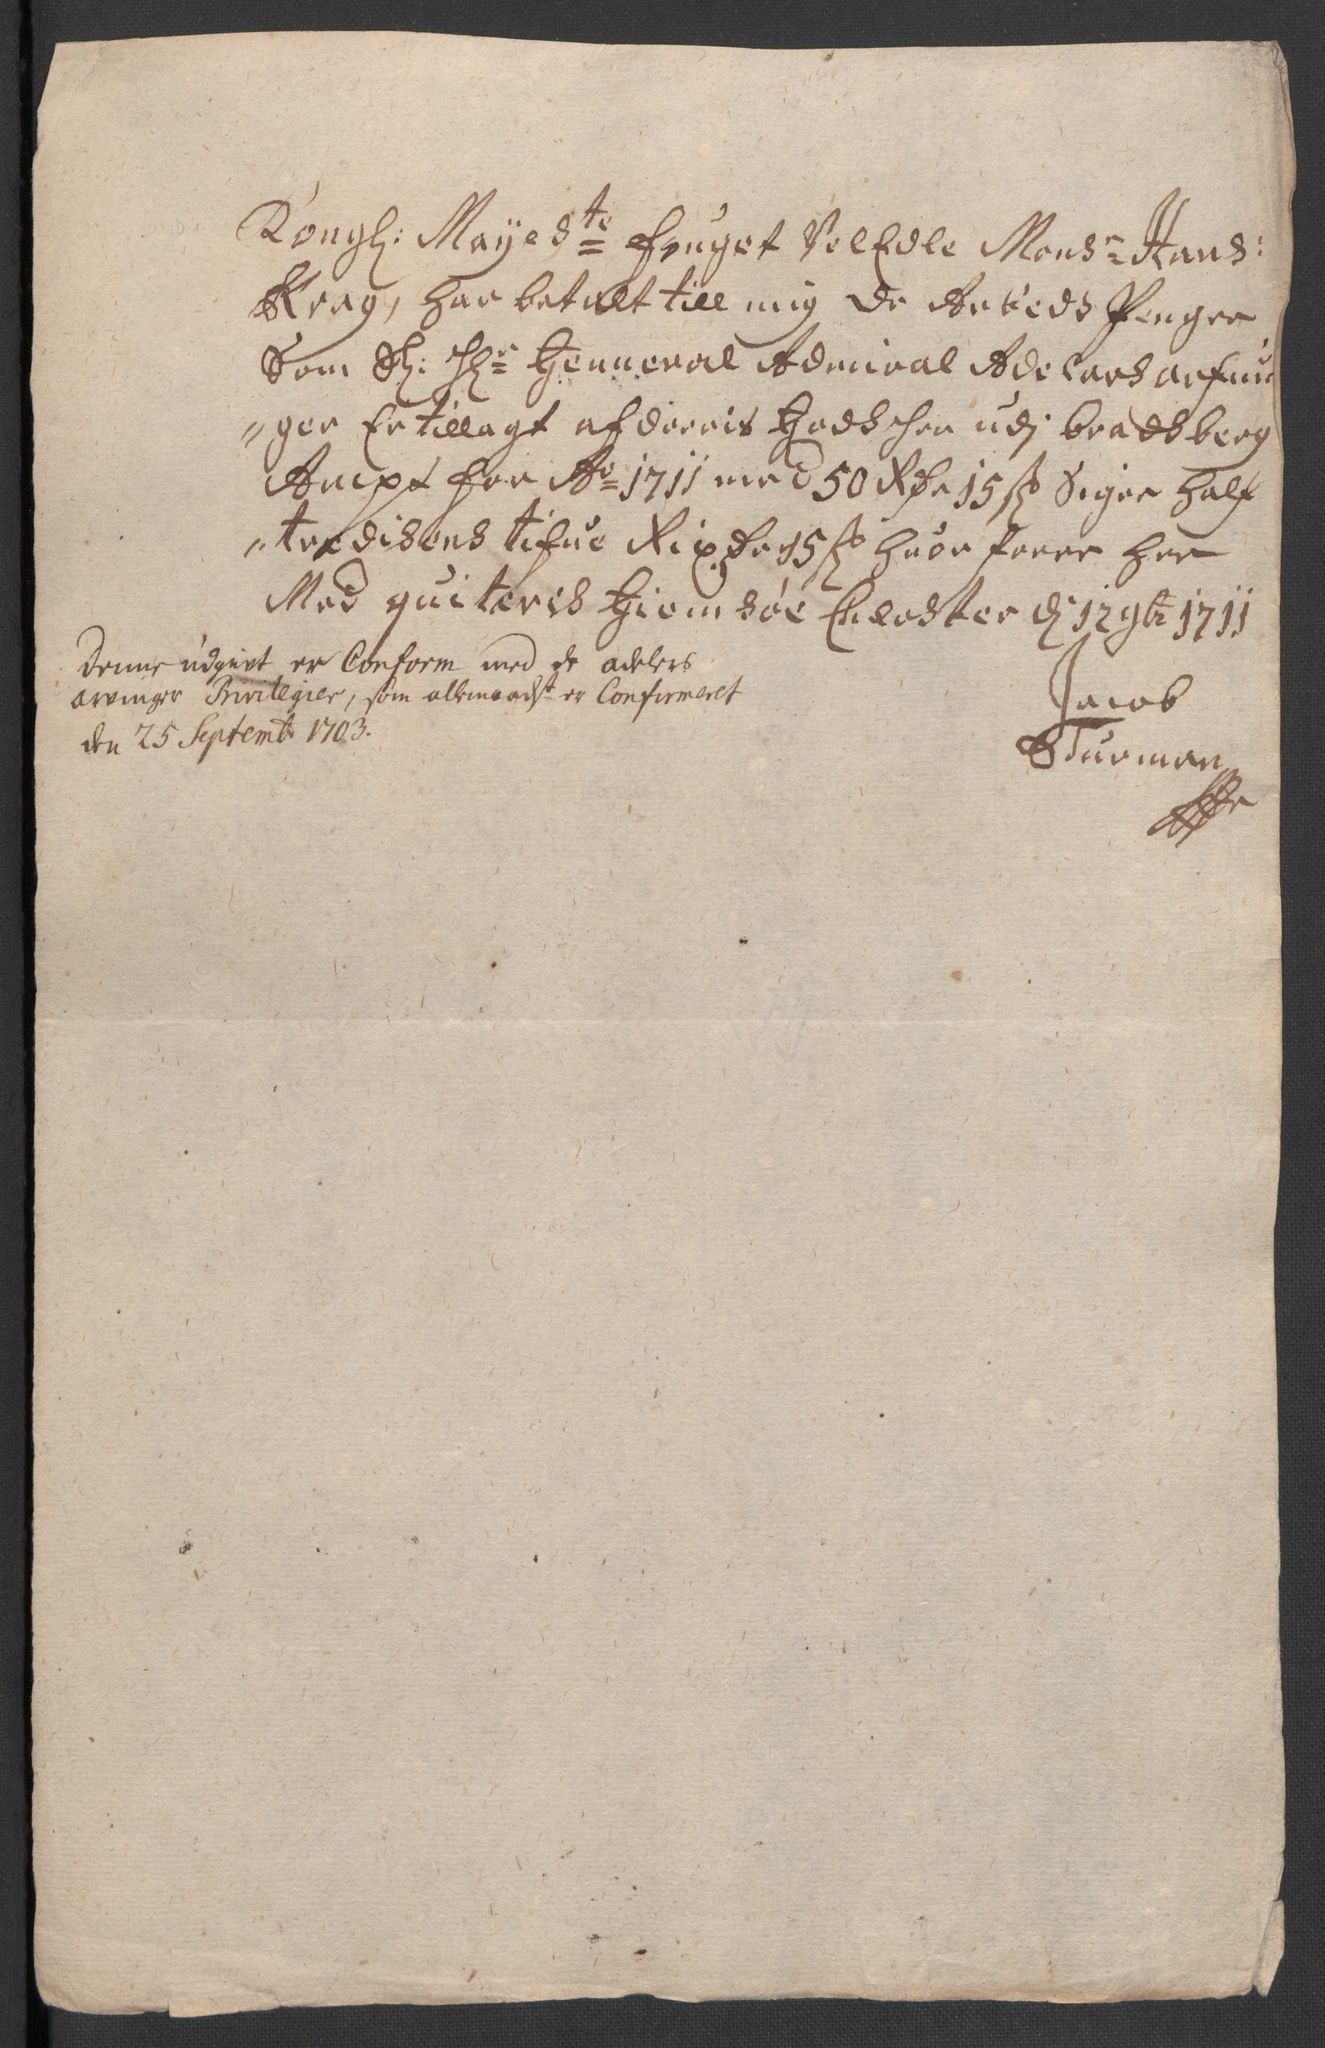 Kongl: Mayeds te fouget VelEdle Monsr Hans:
Krag, har betalt till mig de Arbeds Penger
Som Sl: Hr Henneral Admiral Adelars arfuin
"ger Er tillagt af derris Godscher udj bradsberg
Ampt for Ao 1711 med 50 Rdr 15 ß Siger half
"tredisens tifue Rixdr 15 ß huor forre her
Med quiteris Giemsöe Closter d 12 9br 1711
Jacob
Sturman
Denne udgivt er Conform med de adelers
arvinger Privilegier, som allernaadst er Confirmeret
den 25 Septemb 1703.